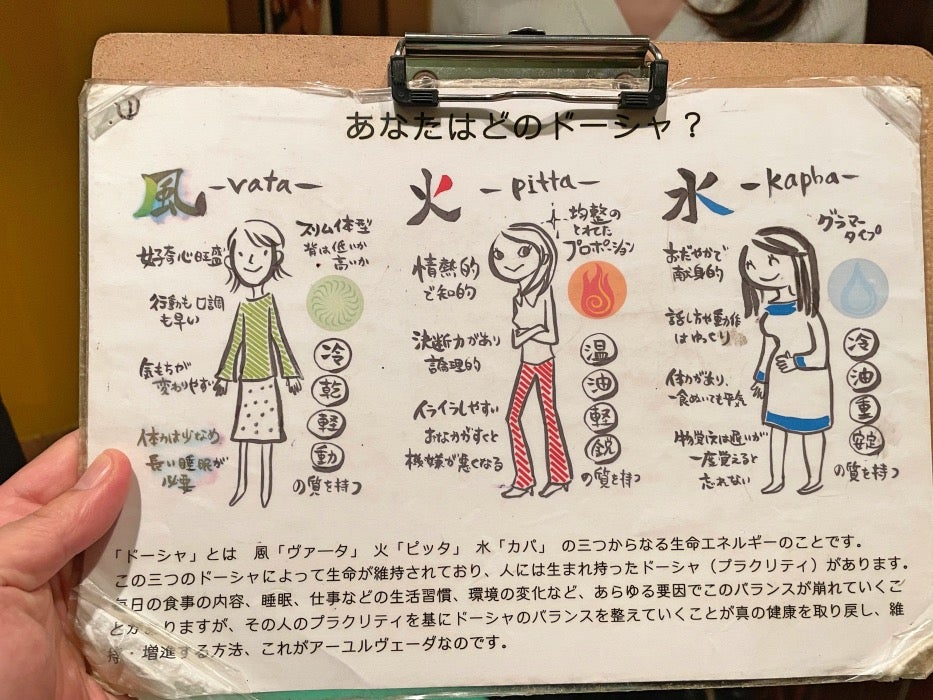 ①
あなたはどのドーシャ？
風 -vata-
スリム体型
背は低いか
・高いか
好奇心旺盛
行動も口調
も早い
気もちが
変わりやすい
体力は少なめ
長い睡眠が
必要
冷
乾
軽
動
の質を持つ
火 -pitta-
均整の
とれた
プロポーション
情熱的
で知的
決断力があり
論理的
イライラしやすい
おなかがすくと
機嫌が悪くなる
温
油
軽
鋭
の質を持つ
水 -kapha-
グラマー
タイプ
おだやかで
献身的
話し方や動作
はゆっくり
体力があり、
一食ぬいても平気
物覚えは遅いが
一度覚えると
忘れない
冷
油
重
安定
の質を持つ
「ドーシャ」とは 風「ヴァータ」 火「ピッタ」 水「カパ」 の三つからなる生命エネルギーのことです。
この三つのドーシャによって生命が維持されており、人には生まれ持ったドーシャ（プラクリティ）があります。
毎日の食事の内容、睡眠、仕事などの生活習慣、環境の変化など、あらゆる要因でこのバランスが崩れていくこ
とがありますが、その人のプラクリティを基にドーシャのバランスを整えていくことが真の健康を取り戻し、維
持・増進する方法、これがアーユルヴェーダなのです。